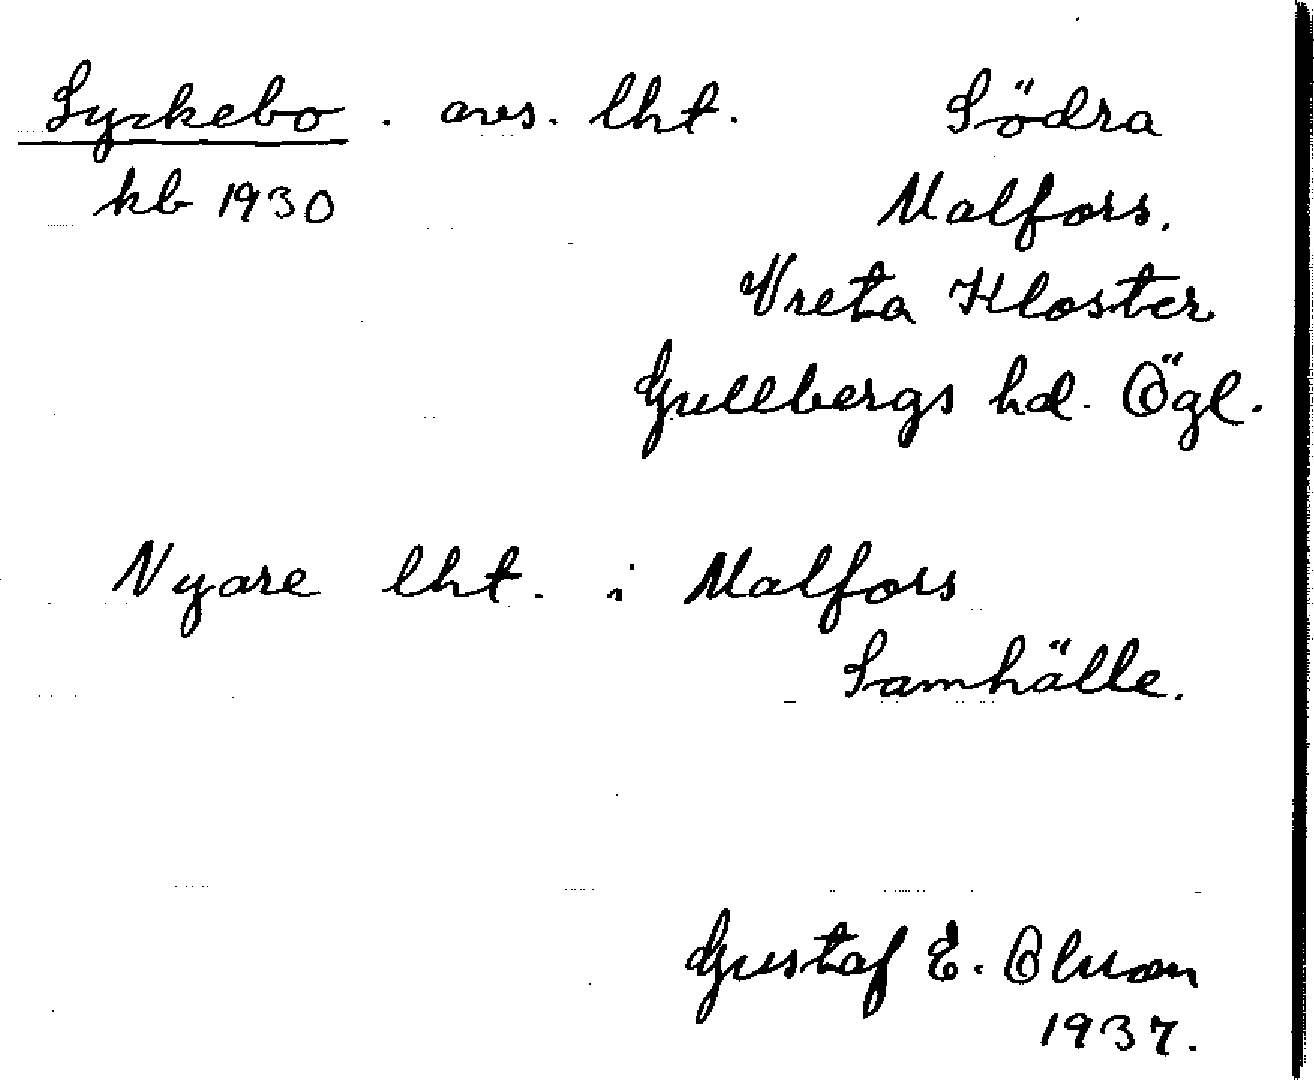 Lyckebo. avs. lht. Södra
kb 1930 Malfors.
Vreta Kloster
Gullbergs hd. Ögl.
Nyare lht. i Malfors
Samhälle.
Gustaf E. Olsson
1937.